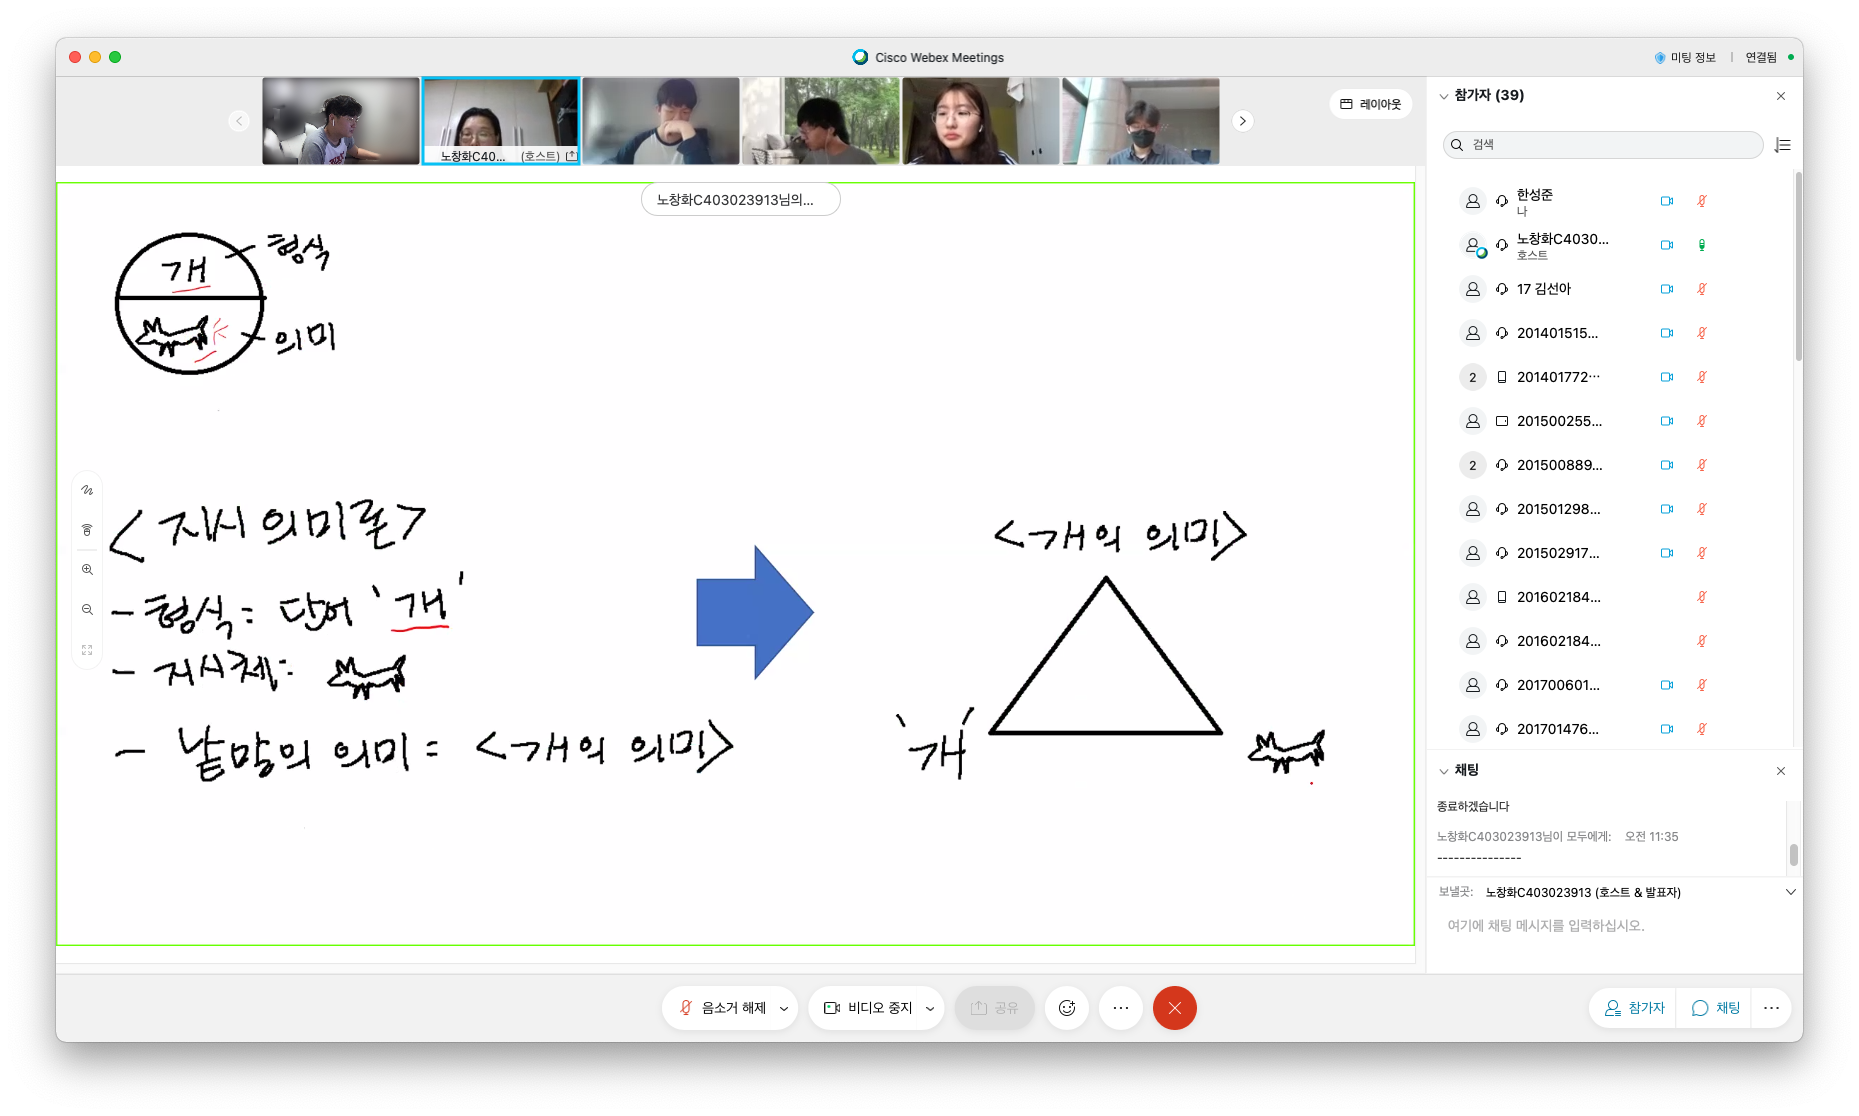 Cisco Webex Meetings
미팅 정보
연결됨
레이아웃
노창화C40... (호스트)
노창화C403023913님의...
개
형식
의미
<지시 의미론>
- 형식 = 단어 '개'
- 지시체 =
- 낱말의 의미 = <개의 의미>
<개의 의미>
'개'
참가자 (39)
검색
한성준
나
노창화C4030...
호스트
17 김선아
201401515...
2
201401772...
201500255...
2
201500889...
201501298...
201502917...
201602184...
201602184...
201700601...
201701476...
채팅
종료하겠습니다
노창화C403023913님이 모두에게: 오전 11:35
---------------
보낼곳: 노창화C403023913 (호스트 & 발표자)
여기에 채팅 메시지를 입력하십시오.
음소거 해제
비디오 중지
공유
참가자
채팅